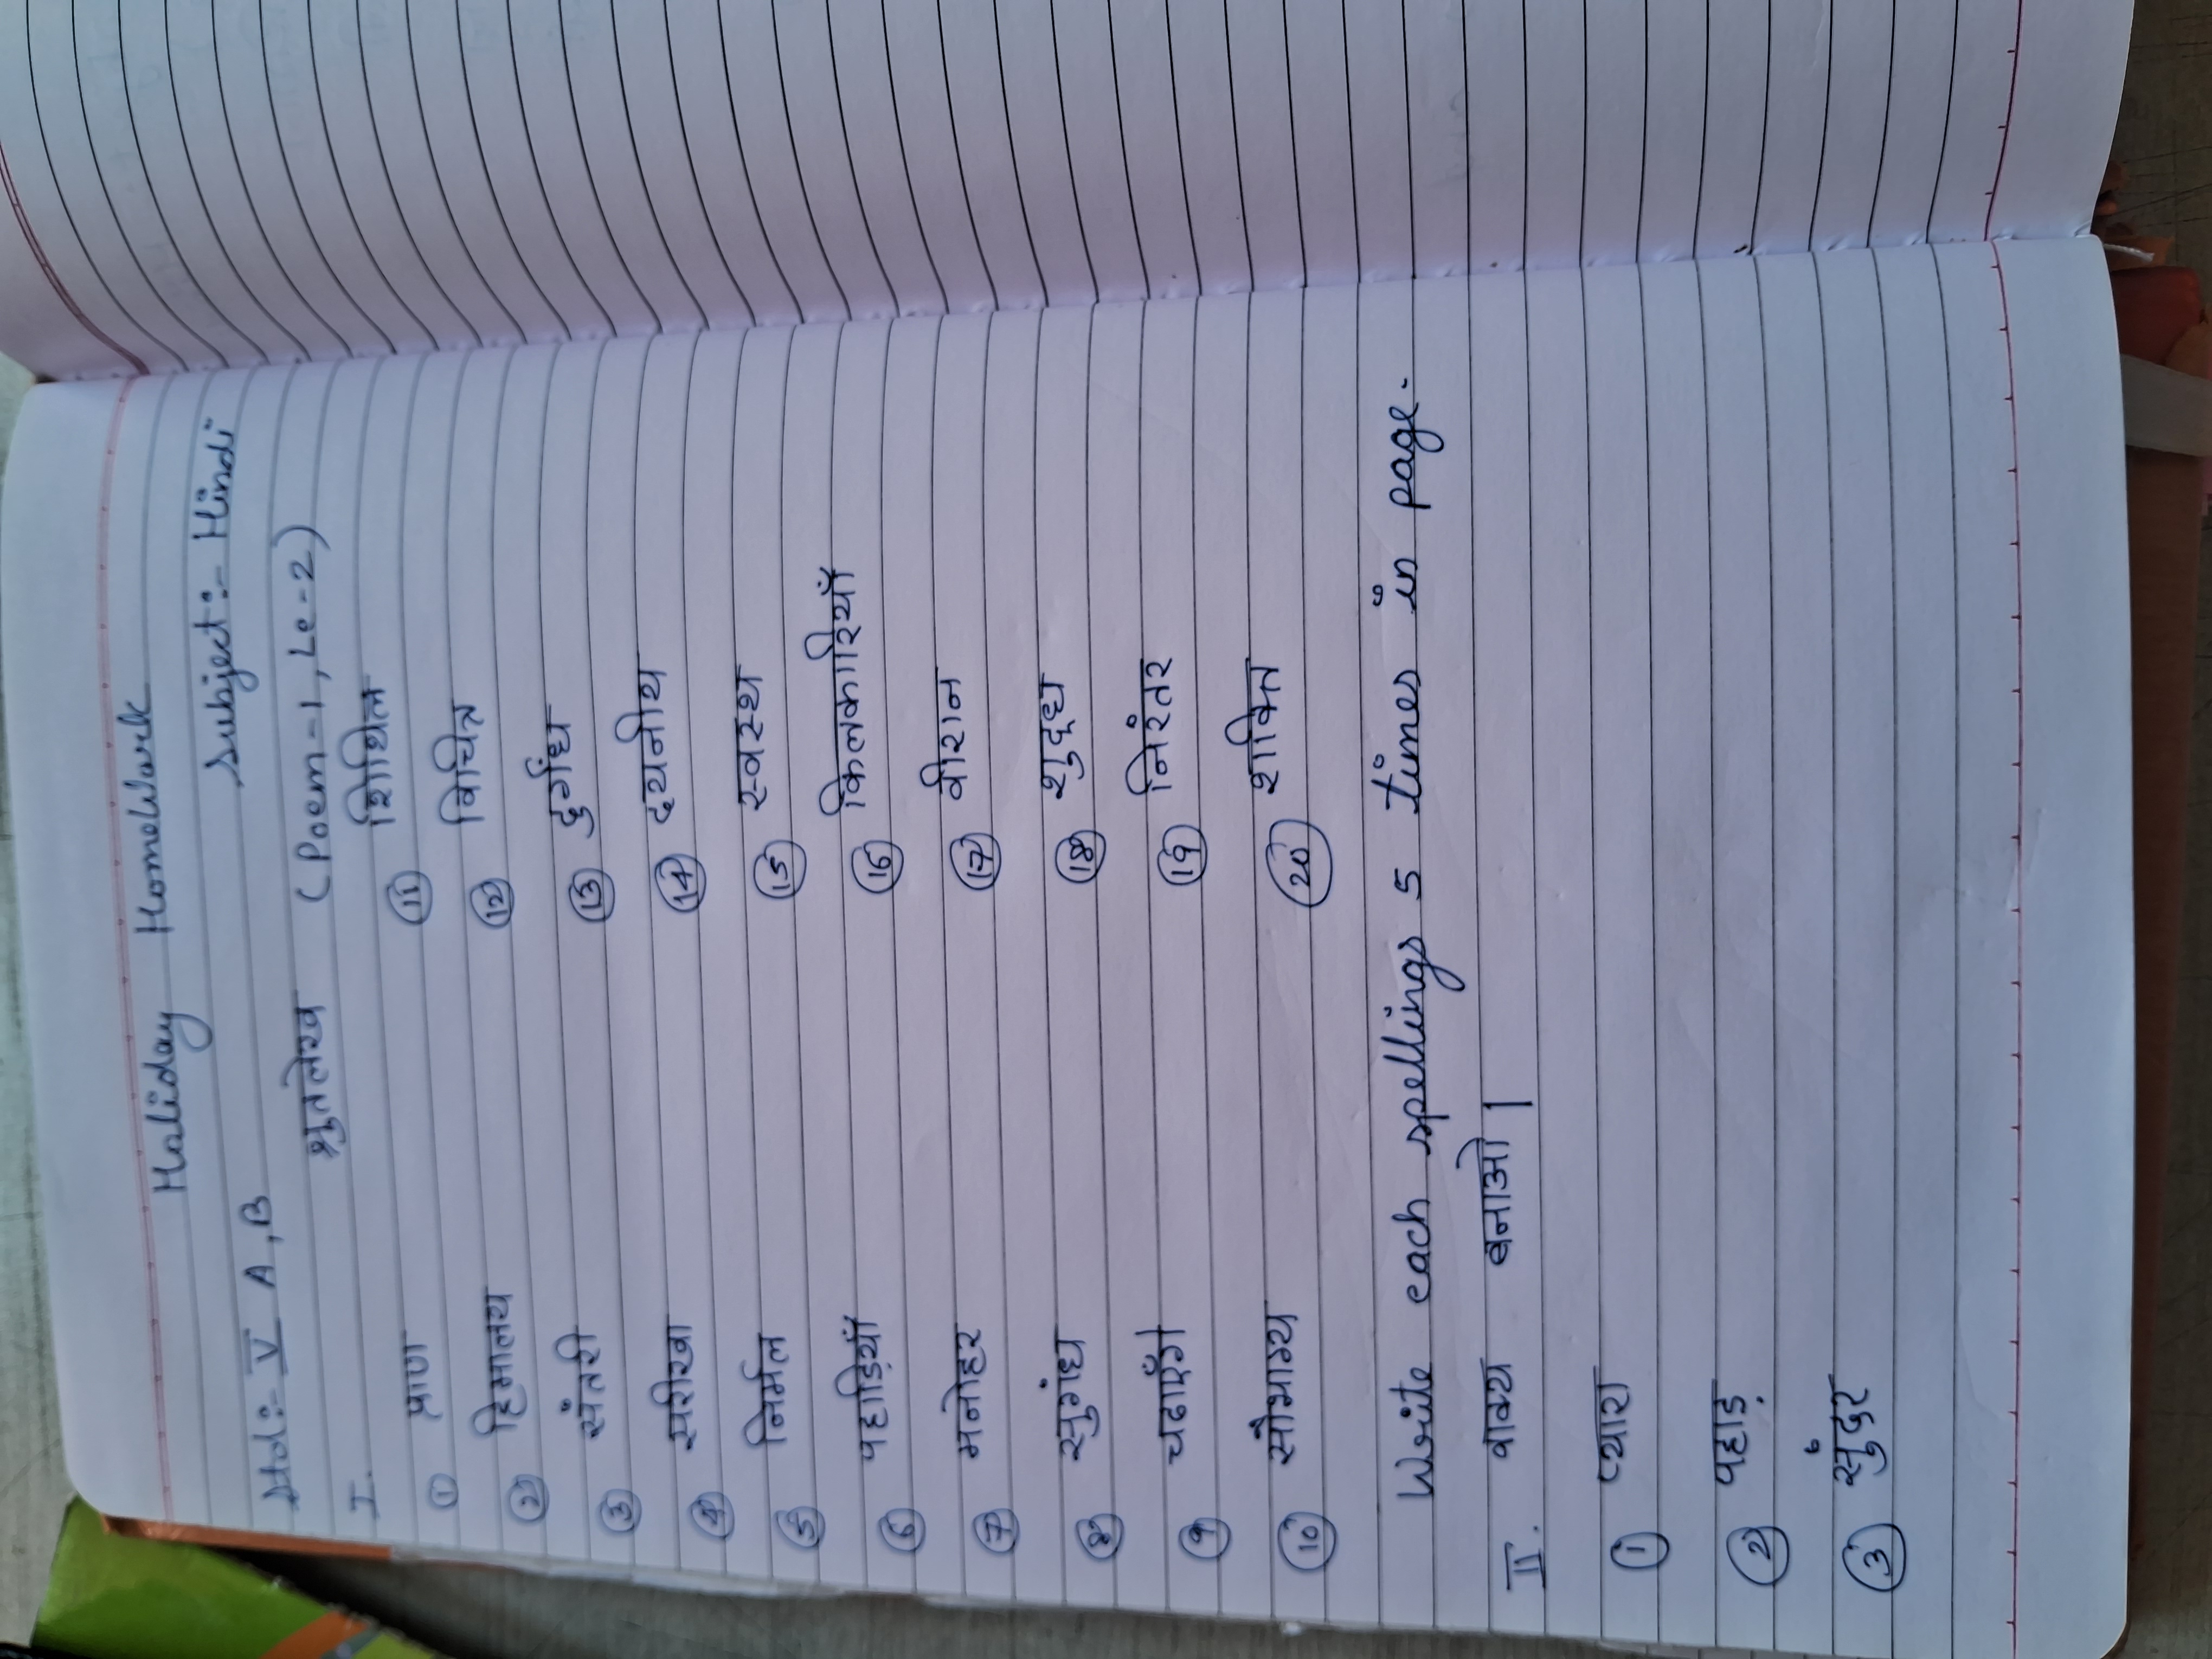 Holiday Homework
Std:- V A,B Subject:- Hindi
I. श्रुतलेख (Poem-1, Le-2)
① प्राण ⑪ शिथिल
② हिमालय ⑫ विचित्र
③ संतरी ⑬ दुर्गंध
④ सरीखा ⑭ दयनीय
⑤ निर्मल ⑮ स्वस्थ
⑥ पहाड़ियाँ ⑯ किलकारियाँ
⑦ मनोहर ⑰ वीरान
⑧ सुगंध ⑱ शुद्ध
⑨ चढाएँगे ⑲ निरंतर
⑩ सौभाग्य ⑳ शक्ति
Write each spellings 5 times in page.
II. वाक्य बनाओ |
① प्यारा
② पहाड़
③ सुंदर